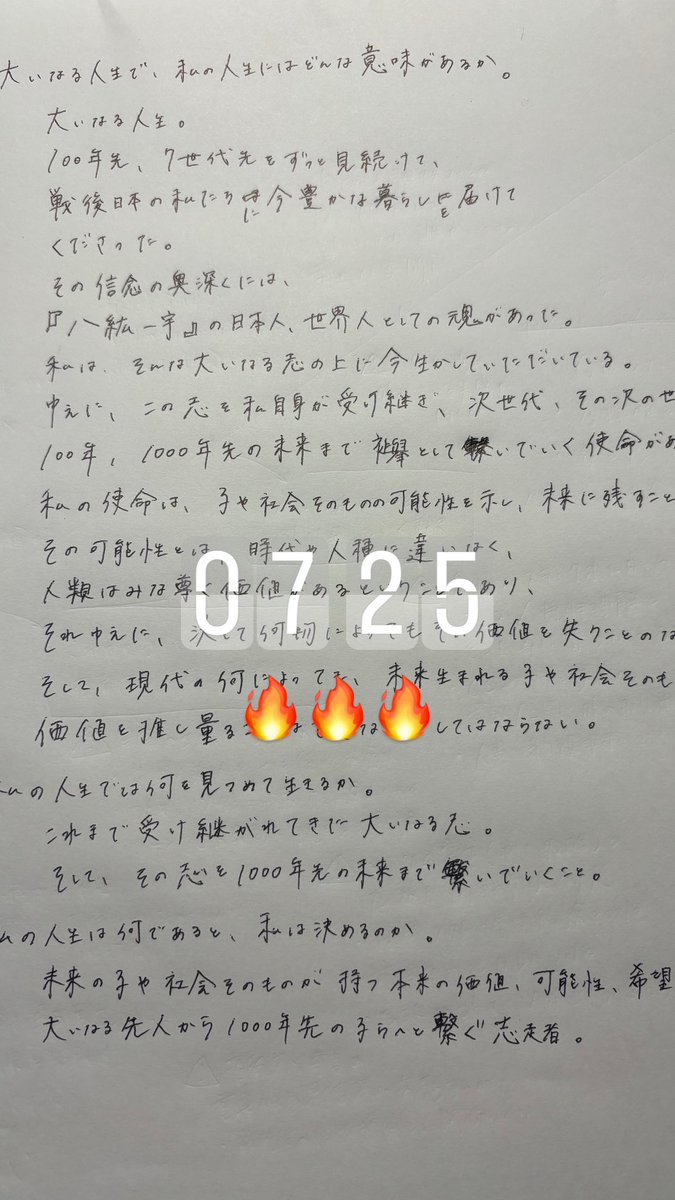 大いなる人生で、私の人生にはどんな意味があるか。
大いなる人生。
100年先、7世代先をずっと見続けて、
戦後日本の私たちに今豊かな暮らしを届けて
くださった。
その信念の奥深くには、
『八紘一宇』の日本人、世界人としての魂があった。
私は、そんな大いなる志の上に今生かしていただいている。
ゆえに、この志を私自身が受け継ぎ、次世代、その次の世
100年、1000年先の未来まで襷として繋いでいく使命があ
私の使命は、子や社会そのものの可能性を示し、未来に残すこと
その可能性とは、時代や人種に違いはく、
人類はみな尊く価値があるということであり、
それゆえに、決して何物によってもその価値を失うことのな
そして、現代の何によっても、未来生まれる子や社会そのも
0725
価値を推し量る してはならない。
私の人生では何を見つめて生きるか。
これまで受け継がれてきた大いなる志。
そして、その志を1000年先の未来まで繋いでいくこと。
の人生は何であると、私は決めるのか。
未来の子や社会そのものが持つ本来の価値、可能性、希望
大いなる先人から1000年先の子らへと繋ぐ志走者。